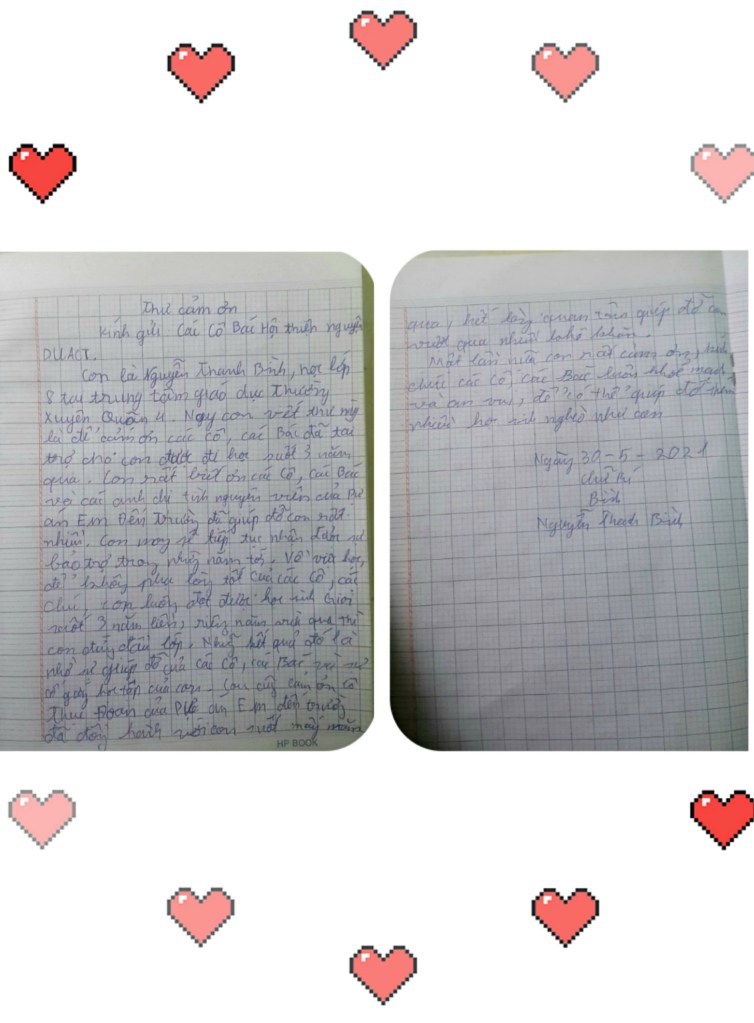 Thư cảm ơn
Kính gửi: Các Cô Bác Hội thiện nguyện
DUACT.
Con là Nguyễn Thanh Bình, học lớp
8 tại trung tâm giáo dục Thường
Xuyên Quận 4. Nay con viết thư này
là để cảm ơn các cô, các Bác đã tài
trợ cho con được đi học suốt 3 năm
qua. Con rất biết ơn các Cô, các Bác
và các anh chị tình nguyện viên của Dự
án Em Đến Trường đã giúp đỡ con rất
nhiều. Con mong sẽ tiếp tục nhận được sự
bảo trợ trong những năm tới. Về việc học,
để không phụ lòng tốt của các Cô, các
chú, con luôn đạt được học sinh Giỏi
suốt 3 năm liền, riêng năm vừa qua thì
con đứng đầu lớp. Những kết quả đó là
nhờ sự giúp đỡ của các Cô, các Bác và sự
cố gắng học tập của con. Con cũng cảm ơn cô
Thục Đoan của Dự án Em đến trường
đã đồng hành với con suốt mấy năm
HP BOOK
qua, hết lòng quan tâm giúp đỡ con
vượt qua nhiều khó khăn.
Một lần nữa con rất cảm ơn, kính
chúc các Cô, các Bác luôn khỏe mạnh
và an vui, để có thể giúp đỡ thêm
nhiều học sinh nghèo như con
Ngày 30-5-2021
Chữ kí
Bình
Nguyễn Thanh Bình